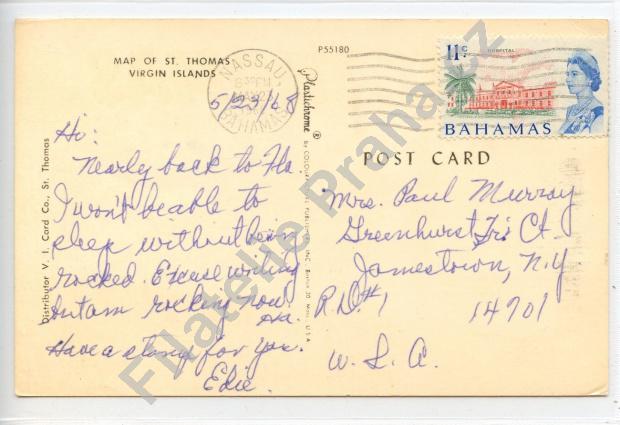 MAP OF ST. THOMAS
VIRGIN ISLANDS
P55180
NASSAU
BAHAMAS
11c
HOSPITAL
BAHAMAS
5/23/68
Hi:
Nearly back to Fla.
I won't be able to
sleep without being
rocked. Excuse writing
but am rocking now.
Have a stamp for you.
Edie.
POST CARD
Mrs. Paul Murray
Greenhurst Ct.
Jamestown, N.Y.
R.D.#1 14701
U.S.A.
Distributor V. I. Card Co., St. Thomas
Plastichrome ®
Filatelie Praha.cz